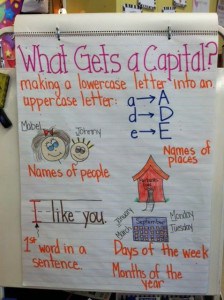 What Gets a Capital?
making a lowercase letter into an
uppercase letter: a → A
d → D
e → E
Mabel
Johnny
Names of people
Names of
places
I like you.
January
March
September
Monday
Tuesday
1st word in a
sentence
Days of the week
Months of the
year